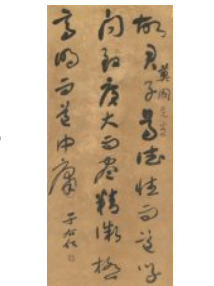 故君子尊德性而道學
問致廣大而盡精微極
高明而道中庸
于右任